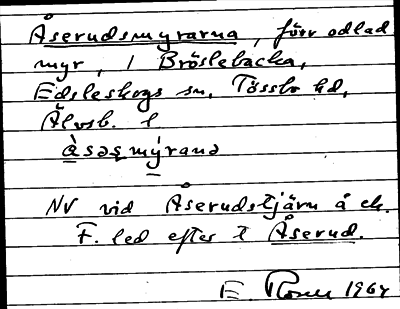 Åserudsmyrarna, förr odlad
myr, i Bröslebacka,
Edsleskogs sn, Tössbo hd,
Älvsb. l
åsəsmy̌rana
NV vid Åserudstjärn å ek.
F. led efter t Åserud.
E. 1964